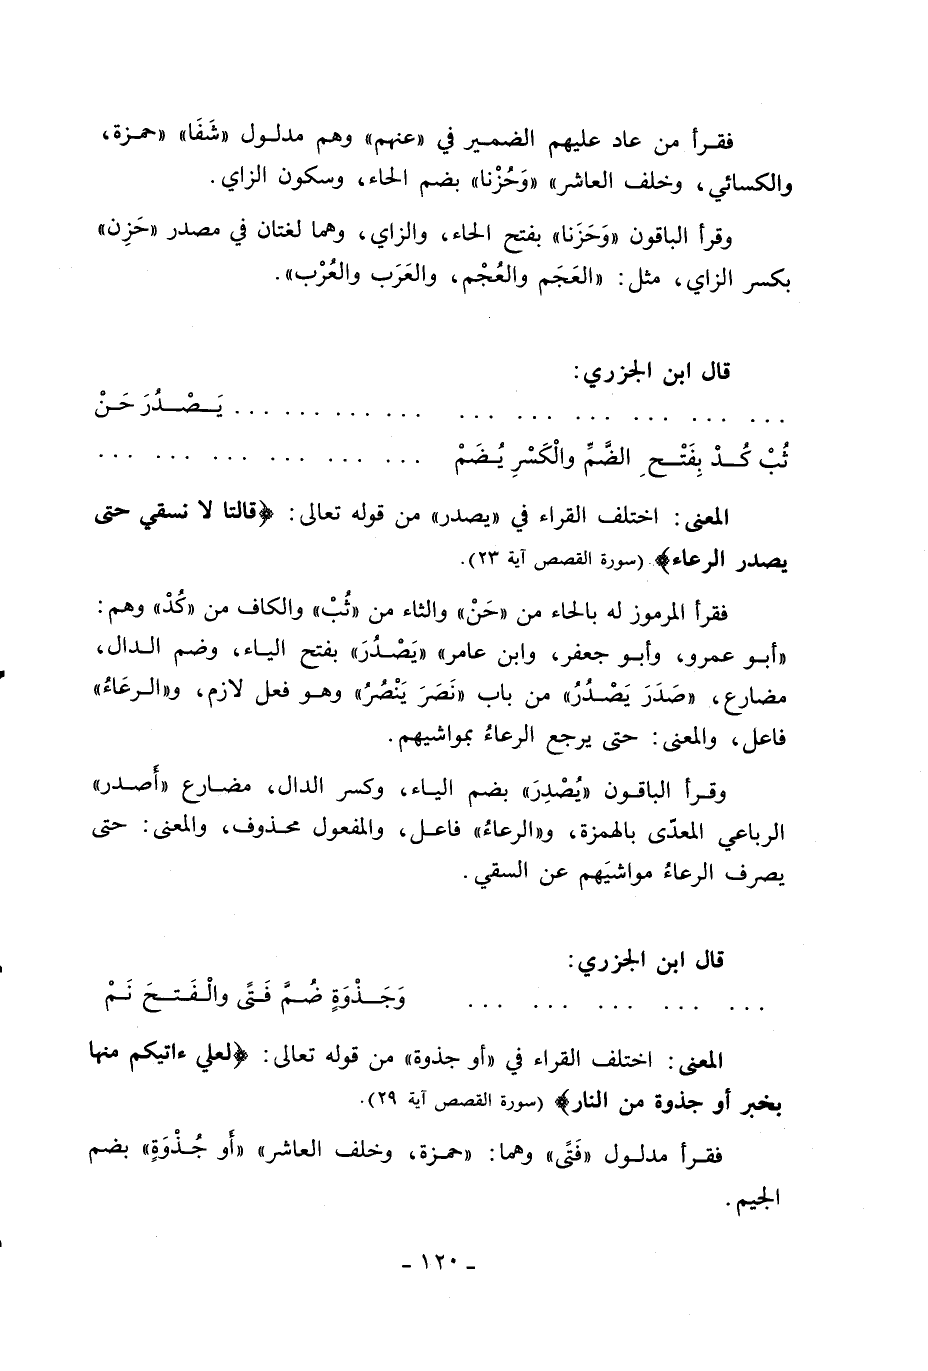 فقرأ من عاد عليهم الضمير في «عنهم» وهم مدلول «شَفَا» «حمزة،
والكسائي، وخلف العاشر» «وَحُزْنا» بضم الحاء، وسكون الزاي.
وقرأ الباقون «وَحَزَنا» بفتح الحاء، والزاي، وهما لغتان في مصدر «حَزِن»
بكسر الزاي، مثل: «العَجَم والعُجْم، والعَرَب والعُرْب».
قال ابن الجزري:
... ... ... ... ... ... ............ يَـصْـدُرَ حَـنْ
ثُبْ كُـدْ بِفَتْـحِ الضَّمِّ والْكَسْرِ يُـضَمْ ... ... ... ... ... ...
المعنى: اختلف القراء في «يصدر» من قوله تعالى: ﴿قالتا لا نسقي حتى
يصدر الرعاء﴾ (سورة القصص آية ٢٣).
فقرأ المرموز له بالحاء من «حَنْ» والثاء من «ثُبْ» والكاف من «كُدْ» وهم:
«أبو عمرو، وأبو جعفر، وابن عامر» «يَصْدُرَ» بفتح الياء، وضم الدال،
مضارع، «صَدَرَ يَصْدُرُ» من باب «نَصَرَ يَنْصُرُ» وهو فعل لازم، و«الرعَاءُ»
فاعل، والمعنى: حتى يرجع الرعاءُ بمواشيهم.
وقرأ الباقون «يُصْدِرَ» بضم الياء، وكسر الدال، مضارع «أَصدر»
الرباعي المعدّى بالهمزة، و«الرعاءُ» فاعل، والمفعول محذوف، والمعنى: حتى
يصرف الرعاءُ مواشيَهم عن السقي.
قال ابن الجزري:
... ... ... ... ... وَجَـذْوَةٍ ضُمَّ فَـتًى والْـفَـتـحَ نَـمْ
المعنى: اختلف القراء في «أو جذوة» من قوله تعالى: ﴿لعلي ءاتيكم منها
بخبر أو جذوة من النار﴾ (سورة القصص آية ٢٩).
فقرأ مدلول «فَتًى» وهما: «حمزة، وخلف العاشر» «أَو جُذْوَةٍ» بضم
الجيم.
- ١٢٠ -